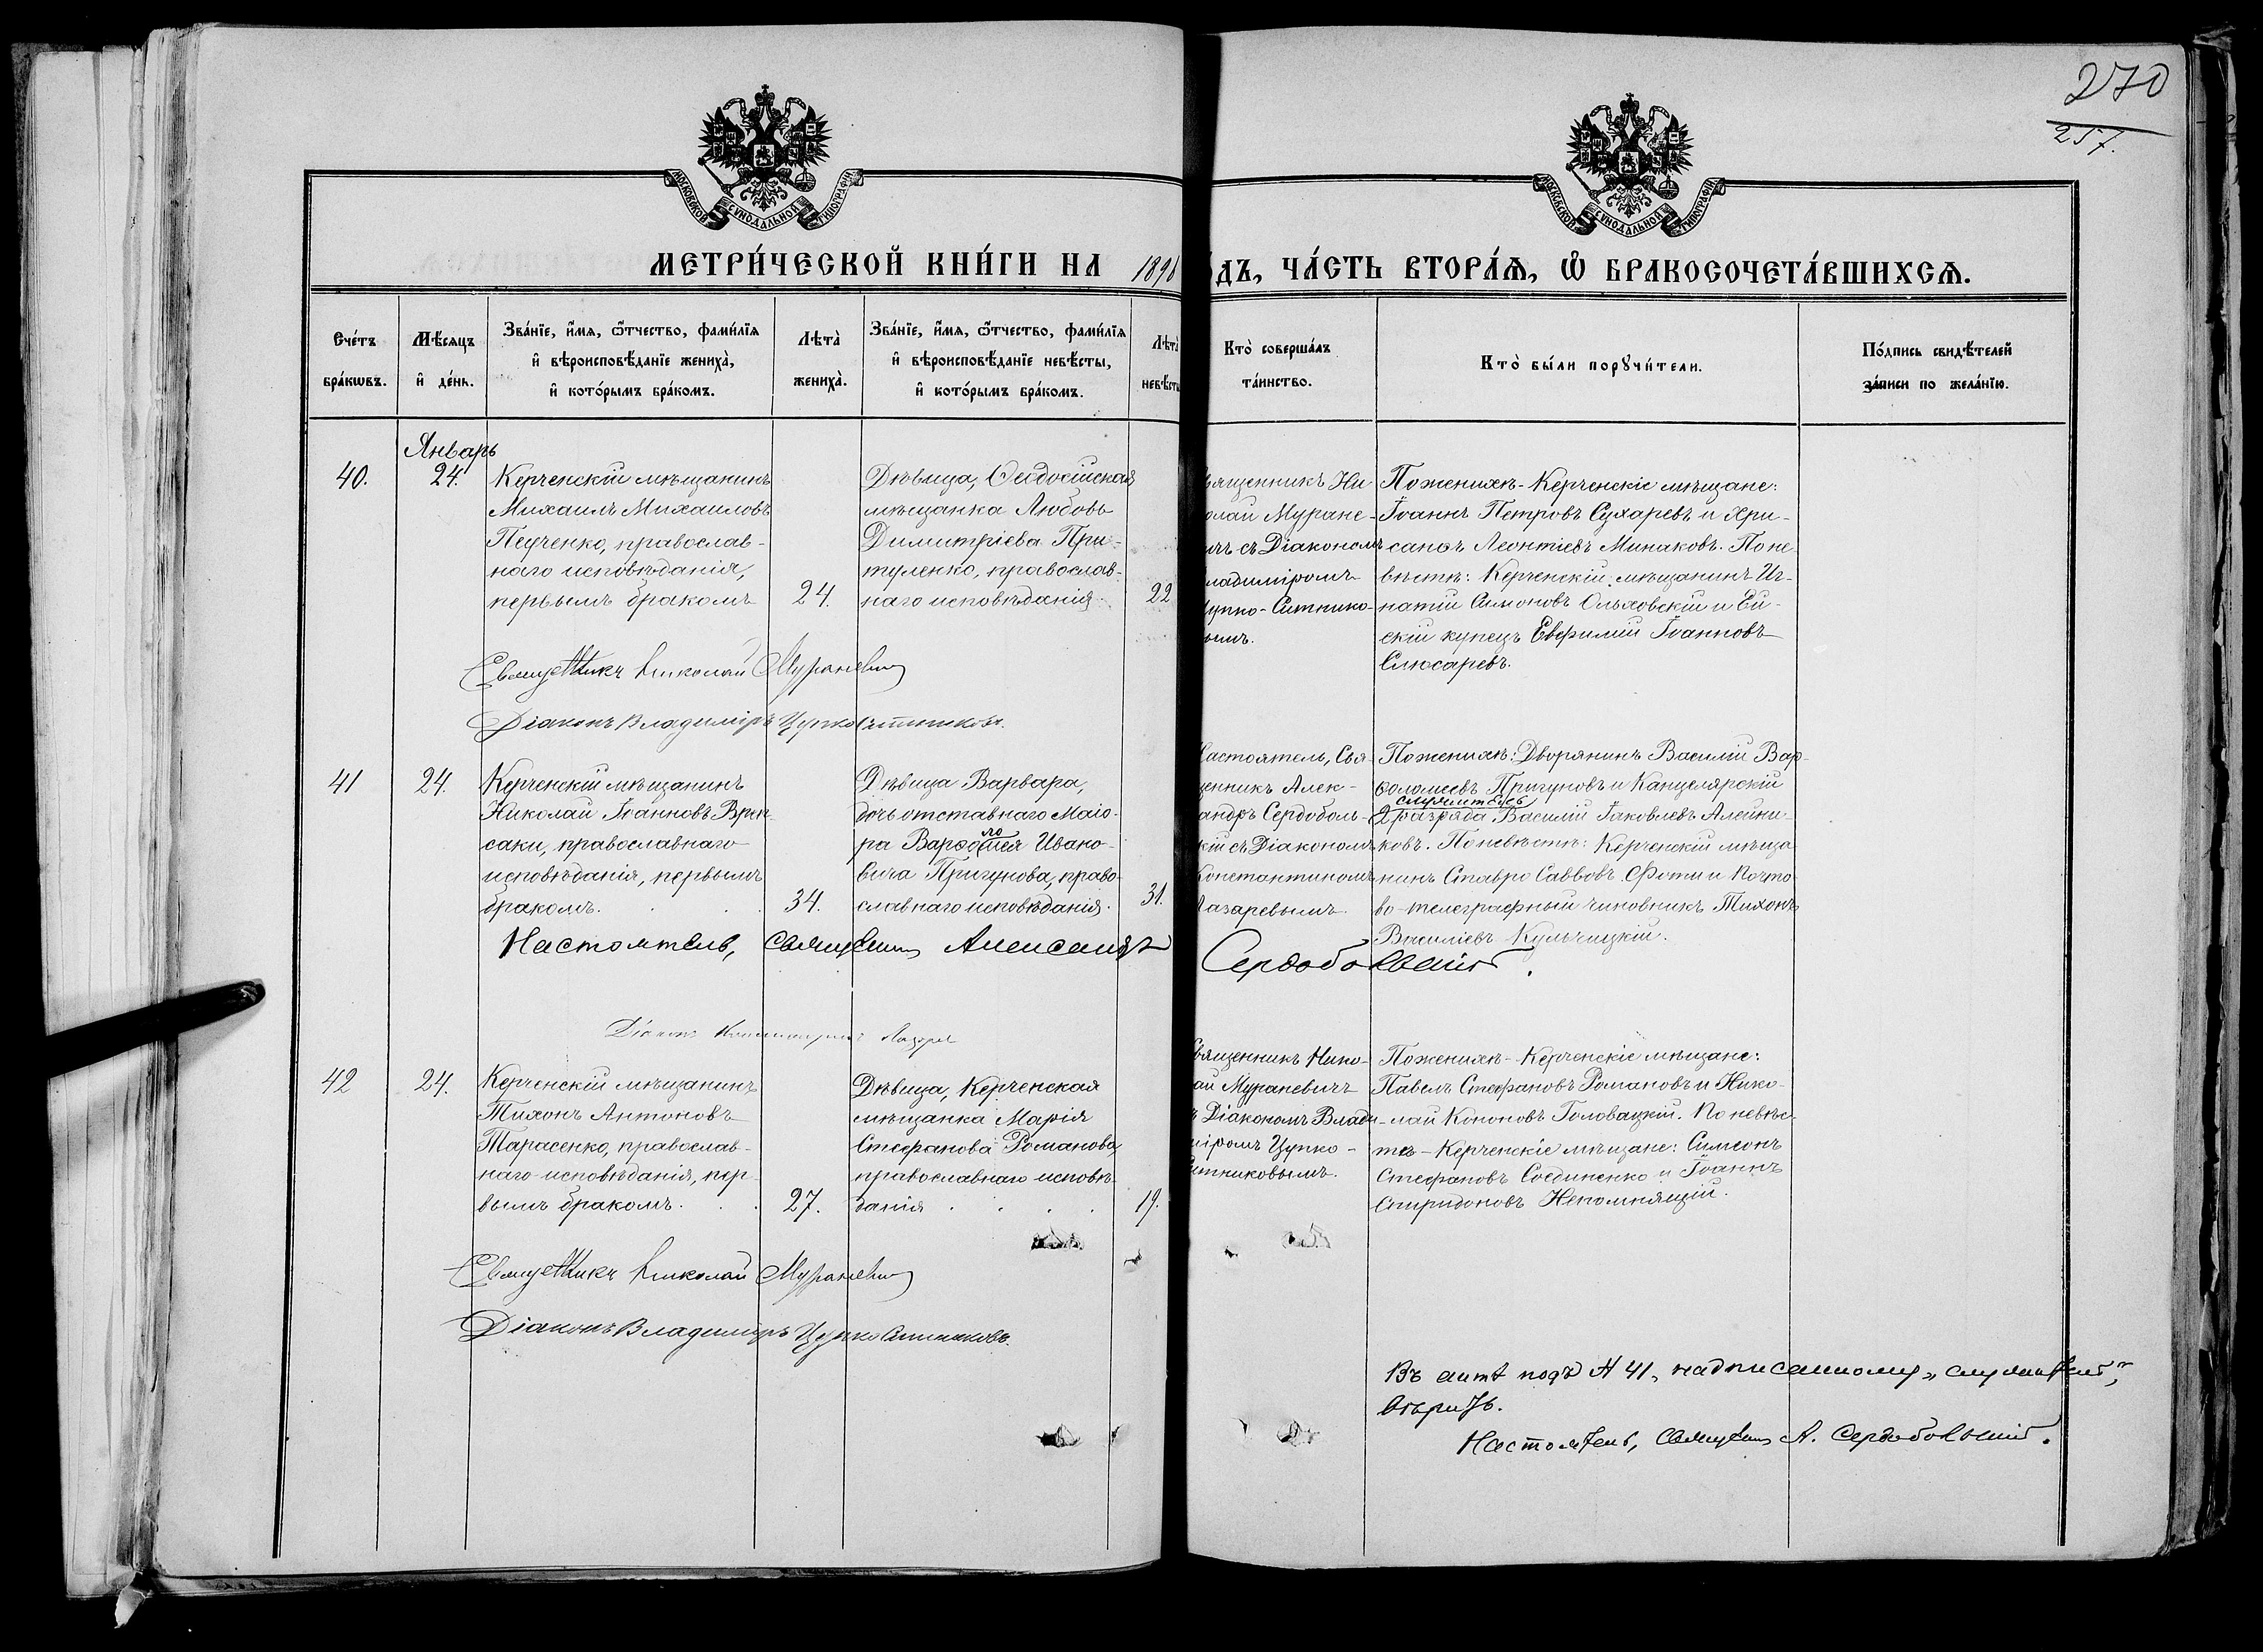 270
257.
МОСКОВСКОЙ СУНОДАЛЬНОЙ ТИПОГРАФІИ
МОСКОВСКОЙ СУНОДАЛЬНОЙ ТИПОГРАФІИ
МЕТРИ́ЧЕСКОЙ КНИ́ГИ НА 1898
О́ДЪ, ЧА́СТЬ ВТОРА́Ѧ, Ѡ҆ БРАКОСОЧЕТА́ВШИХСѦ.
Сче́тъ
бра́кѡвъ.
Мѣ́сяцъ
и҆ де́нь.
Зва́нїе, и҆́мѧ, ѻ҆́тчество, фами́лїѧ
и҆ вѣроисповѣ́данїе жениха̀,
и҆ кото́рымъ бра́комъ.
Лѣта̀
жениха̀.
Зва́нїе, и҆́мѧ, ѻ҆́тчество, фами́лїѧ
и҆ вѣроисповѣ́данїе невѣ́сты,
и҆ кото́рымъ бра́комъ.
Лѣта̀
невѣ́сты
Кто̀ соверша́лъ
та́инство.
Кто̀ бы́ли порꙋчи́тели.
По́дпись свидѣ́телей
за́писи по жела́нїю.
Январь
40.
24.
Керченскій мѣщанинъ
Михаилъ Михаиловъ
Пеученко, православ-
наго исповѣданія,
первымъ бракомъ
24.
Дѣвица, Ѳеодосійская
мѣщанка Любовь
Димитріева При-
туленко, православ-
наго исповѣданія.
22
вященникъ Ни-
олай Муране-
чъ съ Діакономъ
ладиміромъ
Цупко-Ситнико-
вымъ.
По женихѣ - Керченскіе мѣщане:
Іоаннъ Петровъ Сухаревъ и Хри-
санѳъ Леонтіевъ Минаковъ. По не-
вѣстѣ: Керченскій мѣщанинъ Иг-
натій Симоновъ Ольховскій и Ей-
скій купецъ Евфимій Іоанновъ
Слюсаревъ.
Священникъ Николай Мураневичъ
Діаконъ Владиміръ Цупко Ситниковъ.
41
24.
Керченскій мѣщанинъ
Николай Іоанновъ Врен-
саки, православнаго
исповѣданія, первымъ
бракомъ.
34.
Дѣвица Варвара,
дочь отставнаго Маіо-
ра Варѳоломея Ивано-
вича Пригунова, право-
славнаго исповѣданія.
31.
Настоятель, Свя-
щенникъ Алек-
андръ Сердоболь-
кій съ Діакономъ
Константиномъ
Лазаревымъ
По женихѣ: Дворянинъ Василій Вар-
ѳоломеевъ Пригуновъ и Канцелярскій
служитель
2 разряда Василій Іаковлевъ Алейни-
ковъ. По невѣстѣ: Керченскій мѣща-
нинъ Ставро Саввовъ Фоти и Почто-
во-телеграфный чиновникъ Тихонъ
Василіевъ Кульчицкій.
Настоятель, Священникъ Александръ Сердобольскій.
Діаконъ Константинъ Лазарев
42
24.
Керченскій мѣщанинъ
Тихонъ Антоновъ
Тарасенко, православ-
наго исповѣданія, пер-
вымъ бракомъ.
27.
Дѣвица, Керченская
мѣщанка Марія
Стефанова Романова,
православнаго исповѣ-
данія
19.
Священникъ Нико-
ай Мураневичъ
ъ Діакономъ Влади-
міромъ Цупко-
Ситниковымъ.
По женихѣ - Керченскіе мѣщане:
Павелъ Стефановъ Романовъ и Нико-
лай Кононовъ Головацкій. По невѣс-
тѣ - Керченскіе мѣщане: Симеонъ
Стефановъ Соединенко и Іоаннъ
Спиридоновъ Непомнящій.
Священникъ Николай Мураневичъ
Діаконъ Владиміръ Цупко Ситниковъ.
Въ актѣ подъ № 41, надписанному „служитель“,
вѣрить.
Настоятель, Священникъ А. Сердобольскій.